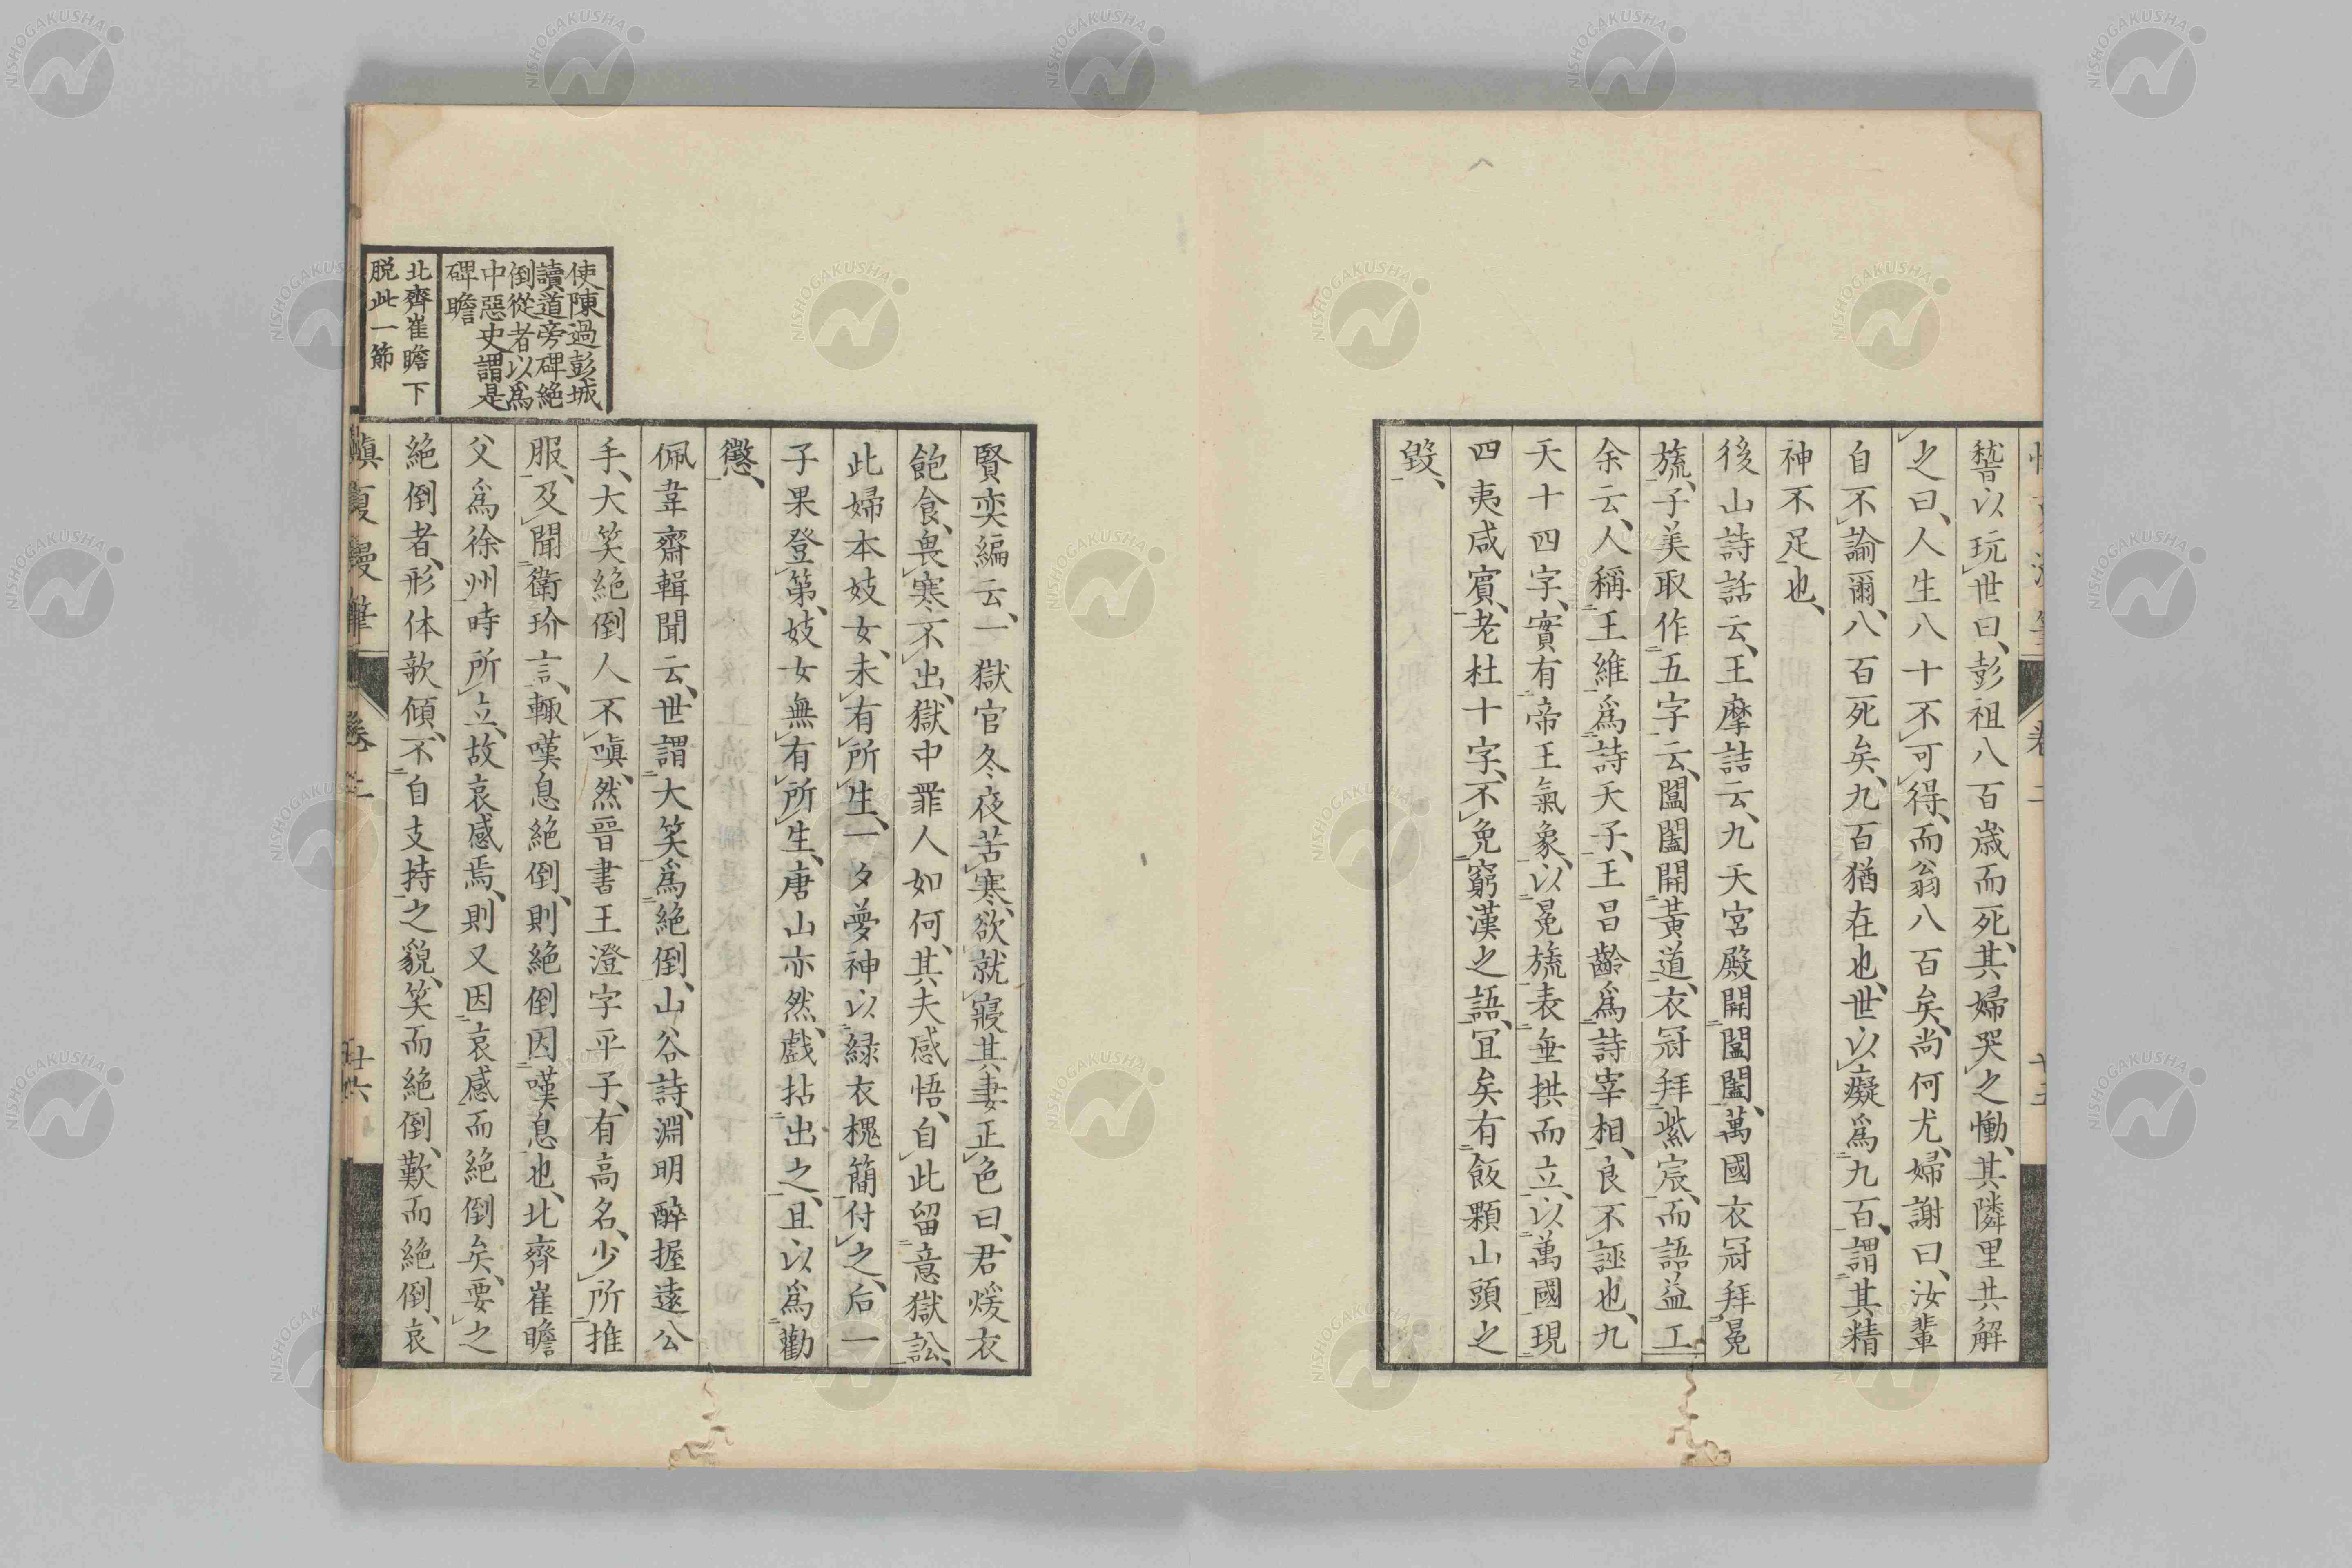 嵆以玩世曰、彭祖八百歳而死、其婦哭之慟、其隣里共解
之曰、人生八十不可得、而翁八百矣、尚何尤、婦謝曰、汝輩
自不論爾、八百死矣、九百猶在也、世以癡爲九百、謂其精
神不足也、
後山詩話云、王摩詰云、九天宮殿開閶闔、萬國衣冠拜冕
旒、子美取作五字云、閶闔開黃道、衣冠拜紫宸、而語益工
余云、人稱王維爲詩天子、王昌齡爲詩宰相、良不誣也、九
天十四字、實有帝王氣象、以冕旒表垂拱而立、以萬國現
四夷咸賓、老杜十字、不免窮漢之語、宜矣有飯顆山頭之
毀、
賢奕編云、一獄官冬夜苦寒、欲就寢其妻正色曰、君煖衣
飽食、畏寒不出、獄中罪人如何、其夫感悟、自此留意獄訟、
此婦本妓女、未有所生、一夕夢神以緑衣槐簡付之、后一
子果登第、妓女無有所生、唐山亦然、戲拈出之、且以爲勸
懲、
佩韋齋輯聞云、世謂大笑爲絶倒、山谷詩、淵明醉握遠公
手、大笑絶倒人不嗔、然晉書王澄字平子、有高名、少所推
服、及聞衛玠言、輙嘆息絶倒、則絶倒因嘆息也、北齊崔瞻
父爲徐州時所立、故哀感焉、則又因哀感而絶倒矣、要之
絶倒者、形体欹傾、不自支持之貌、笑而絶倒、歎而絶倒、哀
使陳過彭城
讀道旁碑絶
倒從者以爲
中惡史謂是
碑瞻
北齊崔瞻下
脱此一節
慎夏漫筆 卷二 廿六
NISHOGAKUSHA